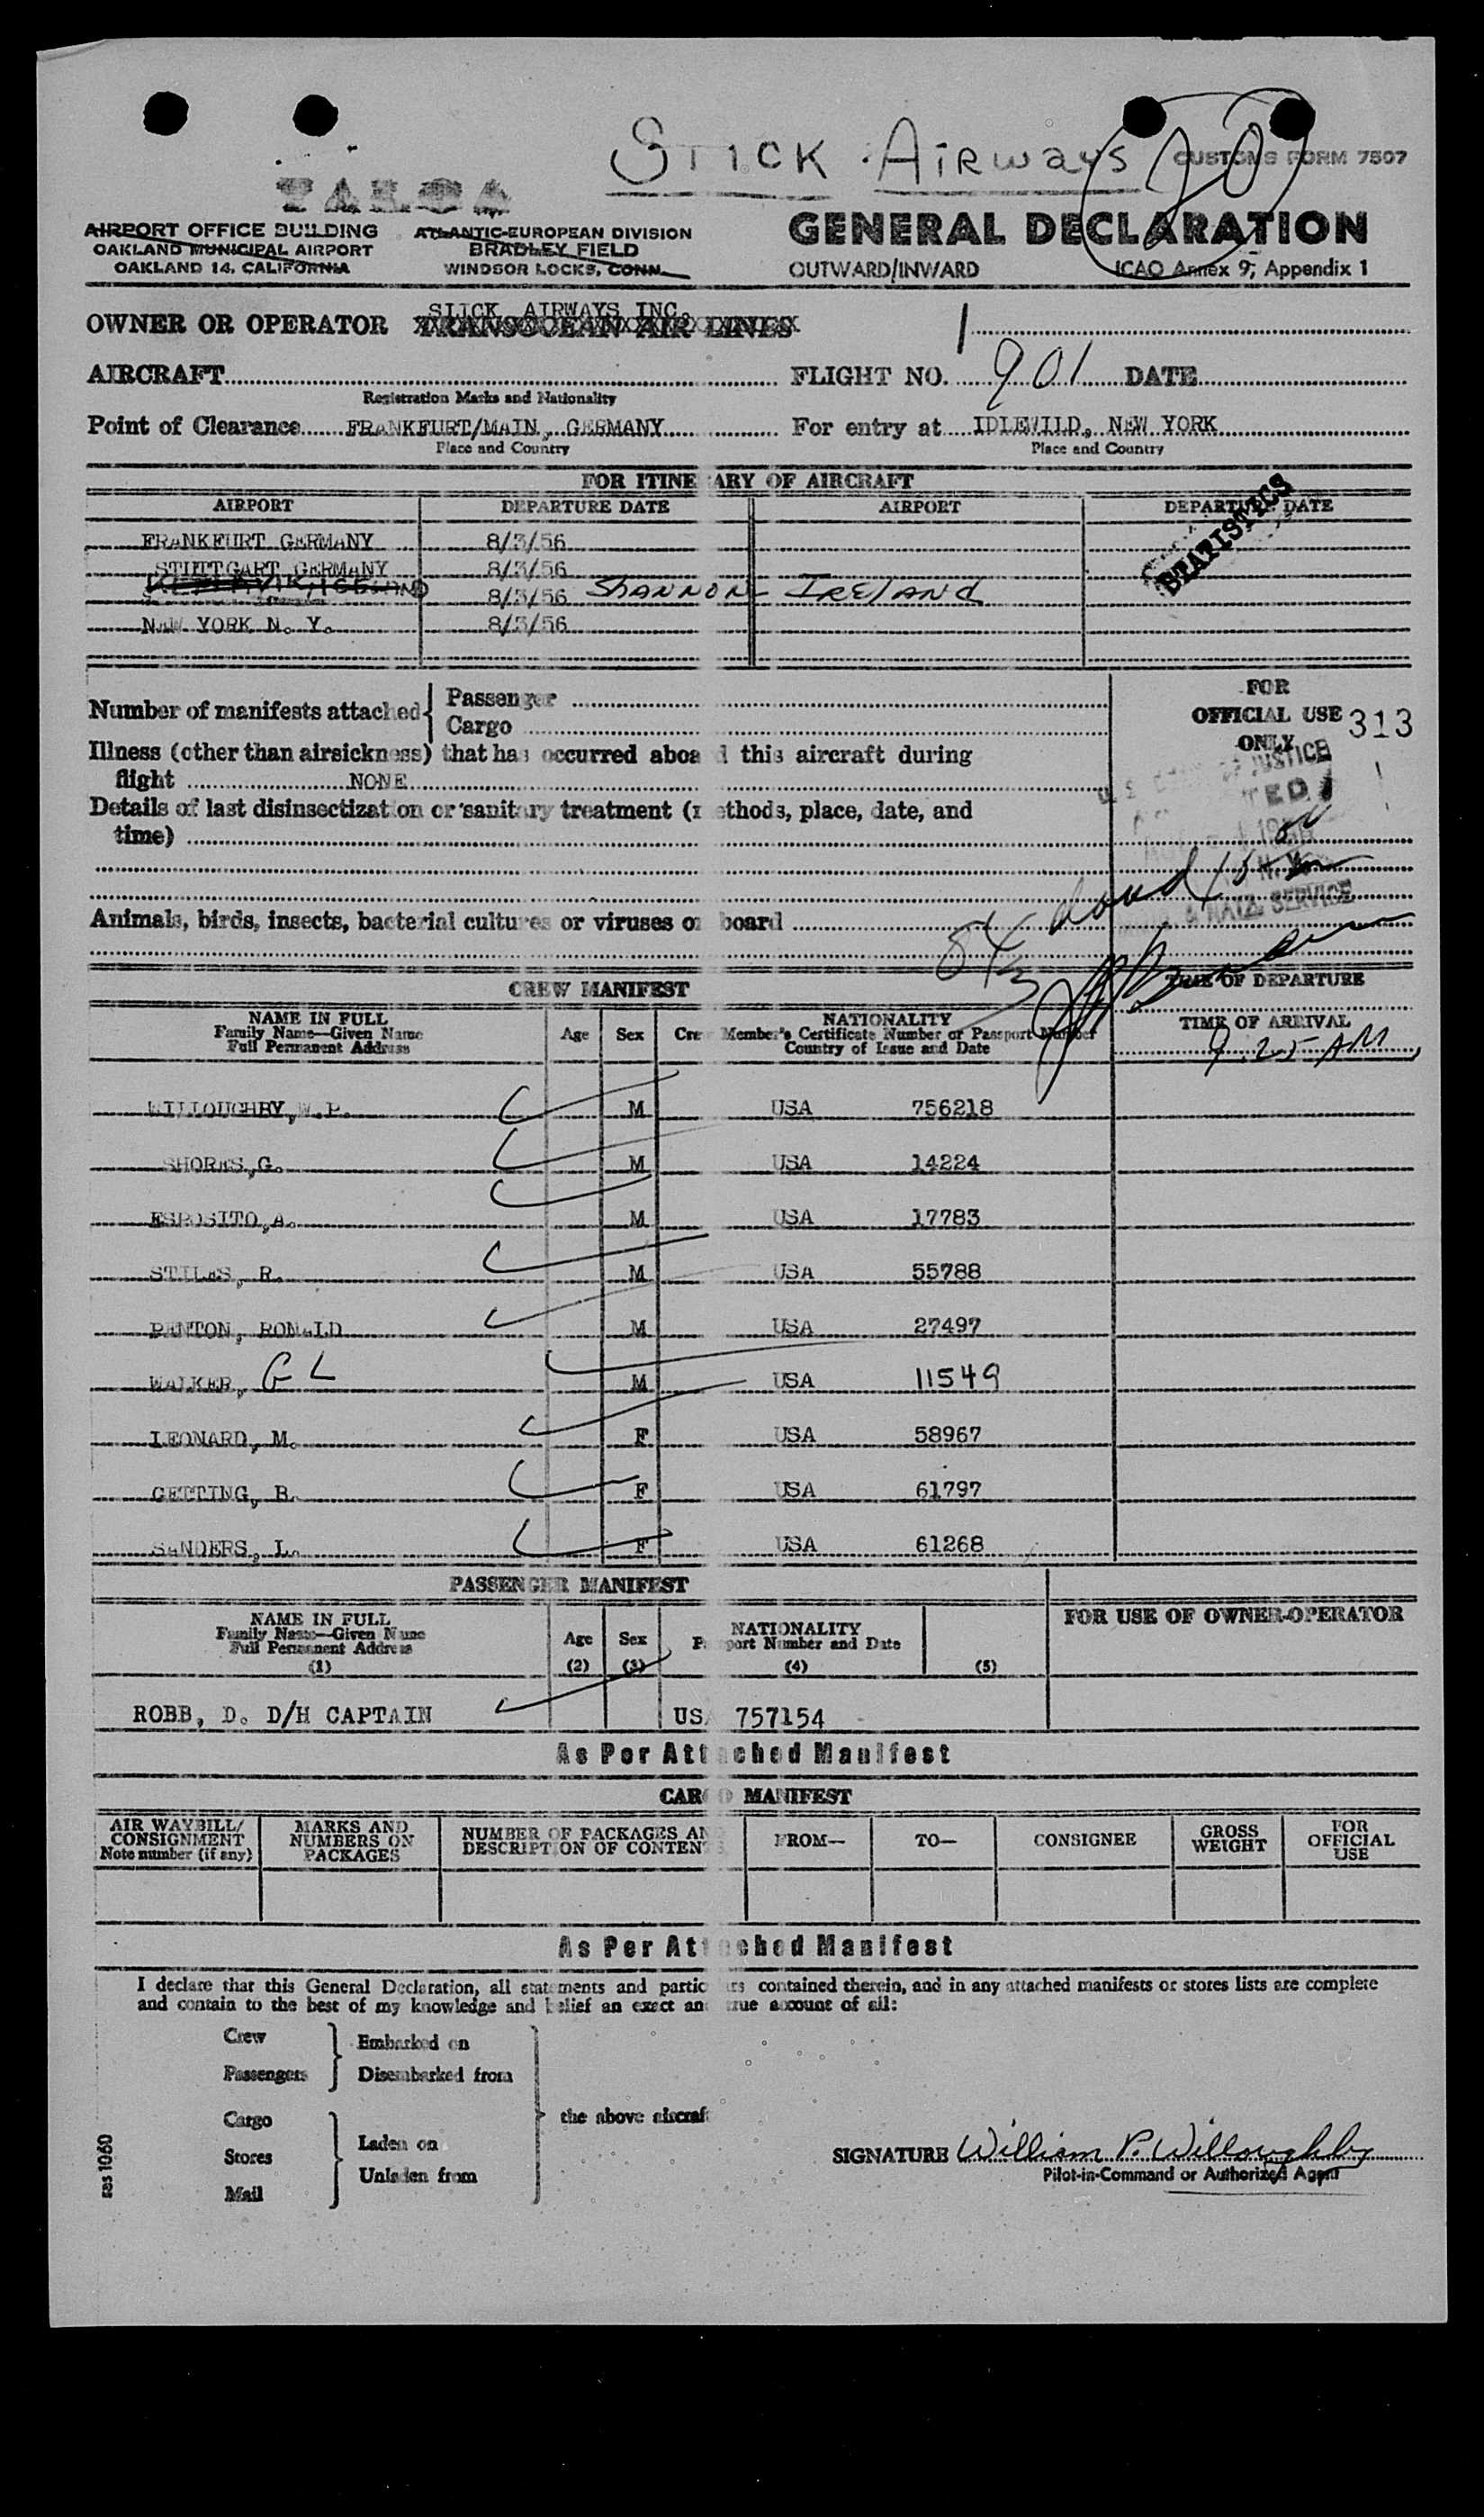 STICK AIRWAYS
CUSTOMS FORM 7507
AIRPORT OFFICE BUILDING
OAKLAND MUNICIPAL AIRPORT
OAKLAND 14, CALIFORNIA
ATLANTIC-EUROPEAN DIVISION
BRADLEY FIELD
WINDSOR LOCKS, CONN.
GENERAL DECLARATION
OUTWARD/INWARD ICAO Annex 9, Appendix 1
SLICK AIRWAYS INC.
OWNER OR OPERATOR TRANSOCEAN AIR LINES
AIRCRAFT FLIGHT NO. 901 DATE
Registration Marks and Nationality
Point of Clearance FRANKFURT/MAIN, GERMANY For entry at IDLEWILD, NEW YORK
Place and Country Place and Country
FOR ITINERARY OF AIRCRAFT
AIRPORT DEPARTURE DATE AIRPORT DEPARTURE DATE
STATISTICS
FRANKFURT GERMANY 8/3/56
STUTTGART GERMANY 8/3/56
8/3/56 SHANNON IRELAND
NEW YORK N. Y. 8/3/56
Number of manifests attached Passenger
Cargo
FOR
OFFICIAL USE 313
ONLY
Illness (other than airsickness) that has occurred aboard this aircraft during
flight NONE
Details of last disinsectization or sanitary treatment (methods, place, date, and
time)
Animals, birds, insects, bacterial cultures or viruses on board
CREW MANIFEST
TIME OF DEPARTURE
NAME IN FULL
Family Name—Given Name
Full Permanent Address
Age Sex
NATIONALITY
Crew Member's Certificate Number or Passport Number
Country of Issue and Date
TIME OF ARRIVAL
9.25 AM
WILLOUGHBY, W.P. M USA 756218
SHORES, G. M USA 14224
ESPOSITO, A. M USA 17783
STILES, R. M USA 55788
PENTON, RONALD M USA 27497
WALKER, G L M USA 11549
LEONARD, M. F USA 58967
GETTING, B. F USA 61797
SANDERS, L. F USA 61268
PASSENGER MANIFEST
NAME IN FULL
Family Name—Given Name
Full Permanent Address
(1)
Age
(2)
Sex
(3)
NATIONALITY
Passport Number and Date
(4) (5)
FOR USE OF OWNER-OPERATOR
ROBB, D. D/H CAPTAIN USA 757154
As Per Attached Manifest
CARGO MANIFEST
AIR WAYBILL/
CONSIGNMENT
Note number (if any)
MARKS AND
NUMBERS ON
PACKAGES
NUMBER OF PACKAGES AND
DESCRIPTION OF CONTENTS
FROM—
TO—
CONSIGNEE
GROSS
WEIGHT
FOR
OFFICIAL
USE
As Per Attached Manifest
I declare that this General Declaration, all statements and particulars contained therein, and in any attached manifests or stores lists are complete
and contain to the best of my knowledge and belief an exact and true account of all:
Crew
Passengers
Embarked on
Disembarked from
Cargo
Stores
Mail
Laden on
Unladen from
the above aircraft
SIGNATURE William P. Willoughby
Pilot-in-Command or Authorized Agent
sas 1060